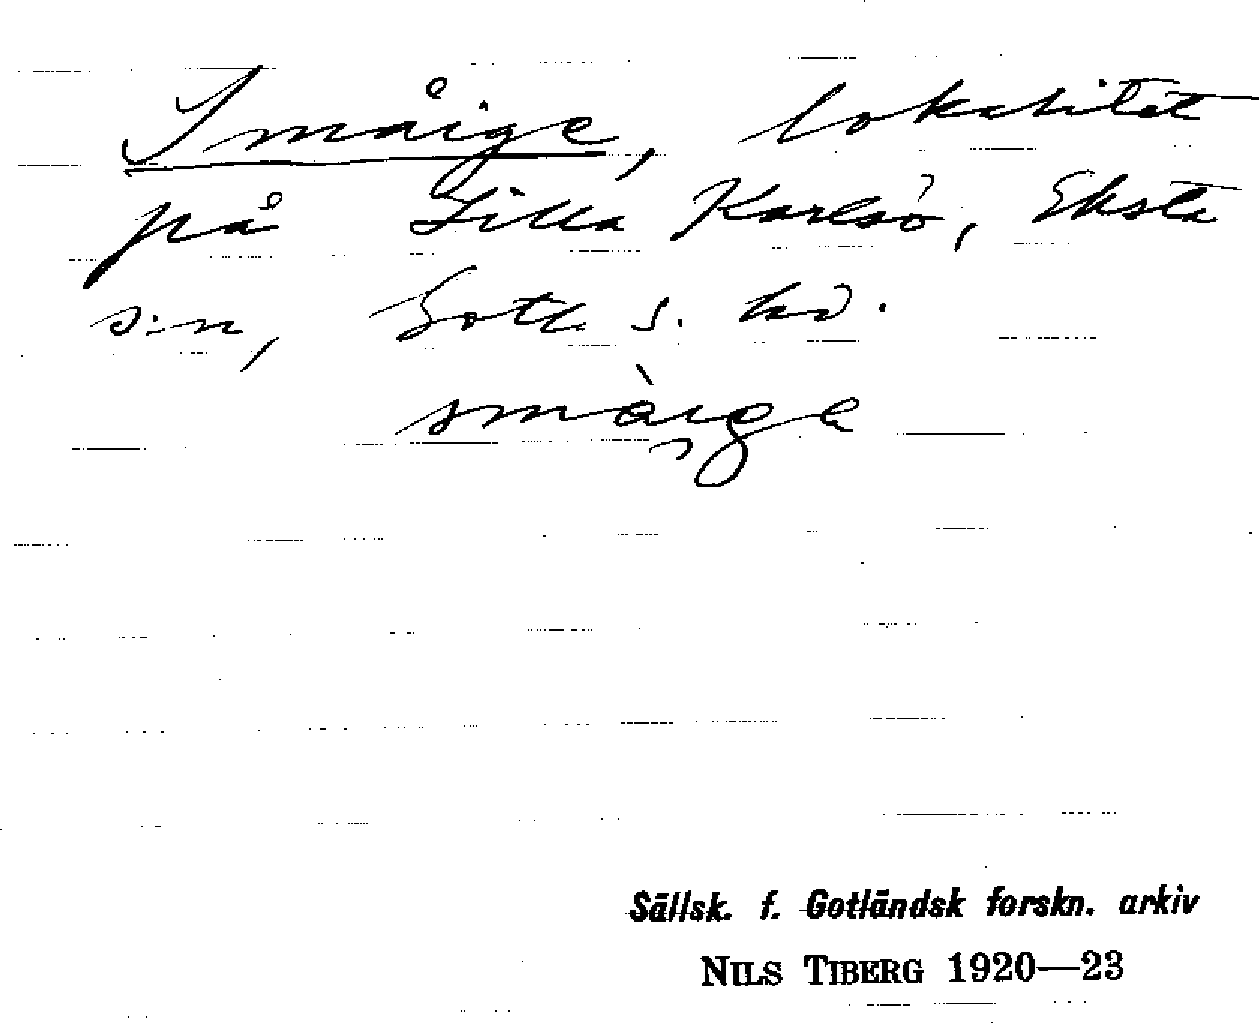 Småige, lokalitet
på Lilla Karlsö, Eksta
s:n, Gotl. s. hd.
smàige
Sällsk. f. Gotländsk forskn. arkiv
NILS TIBERG 1920—23